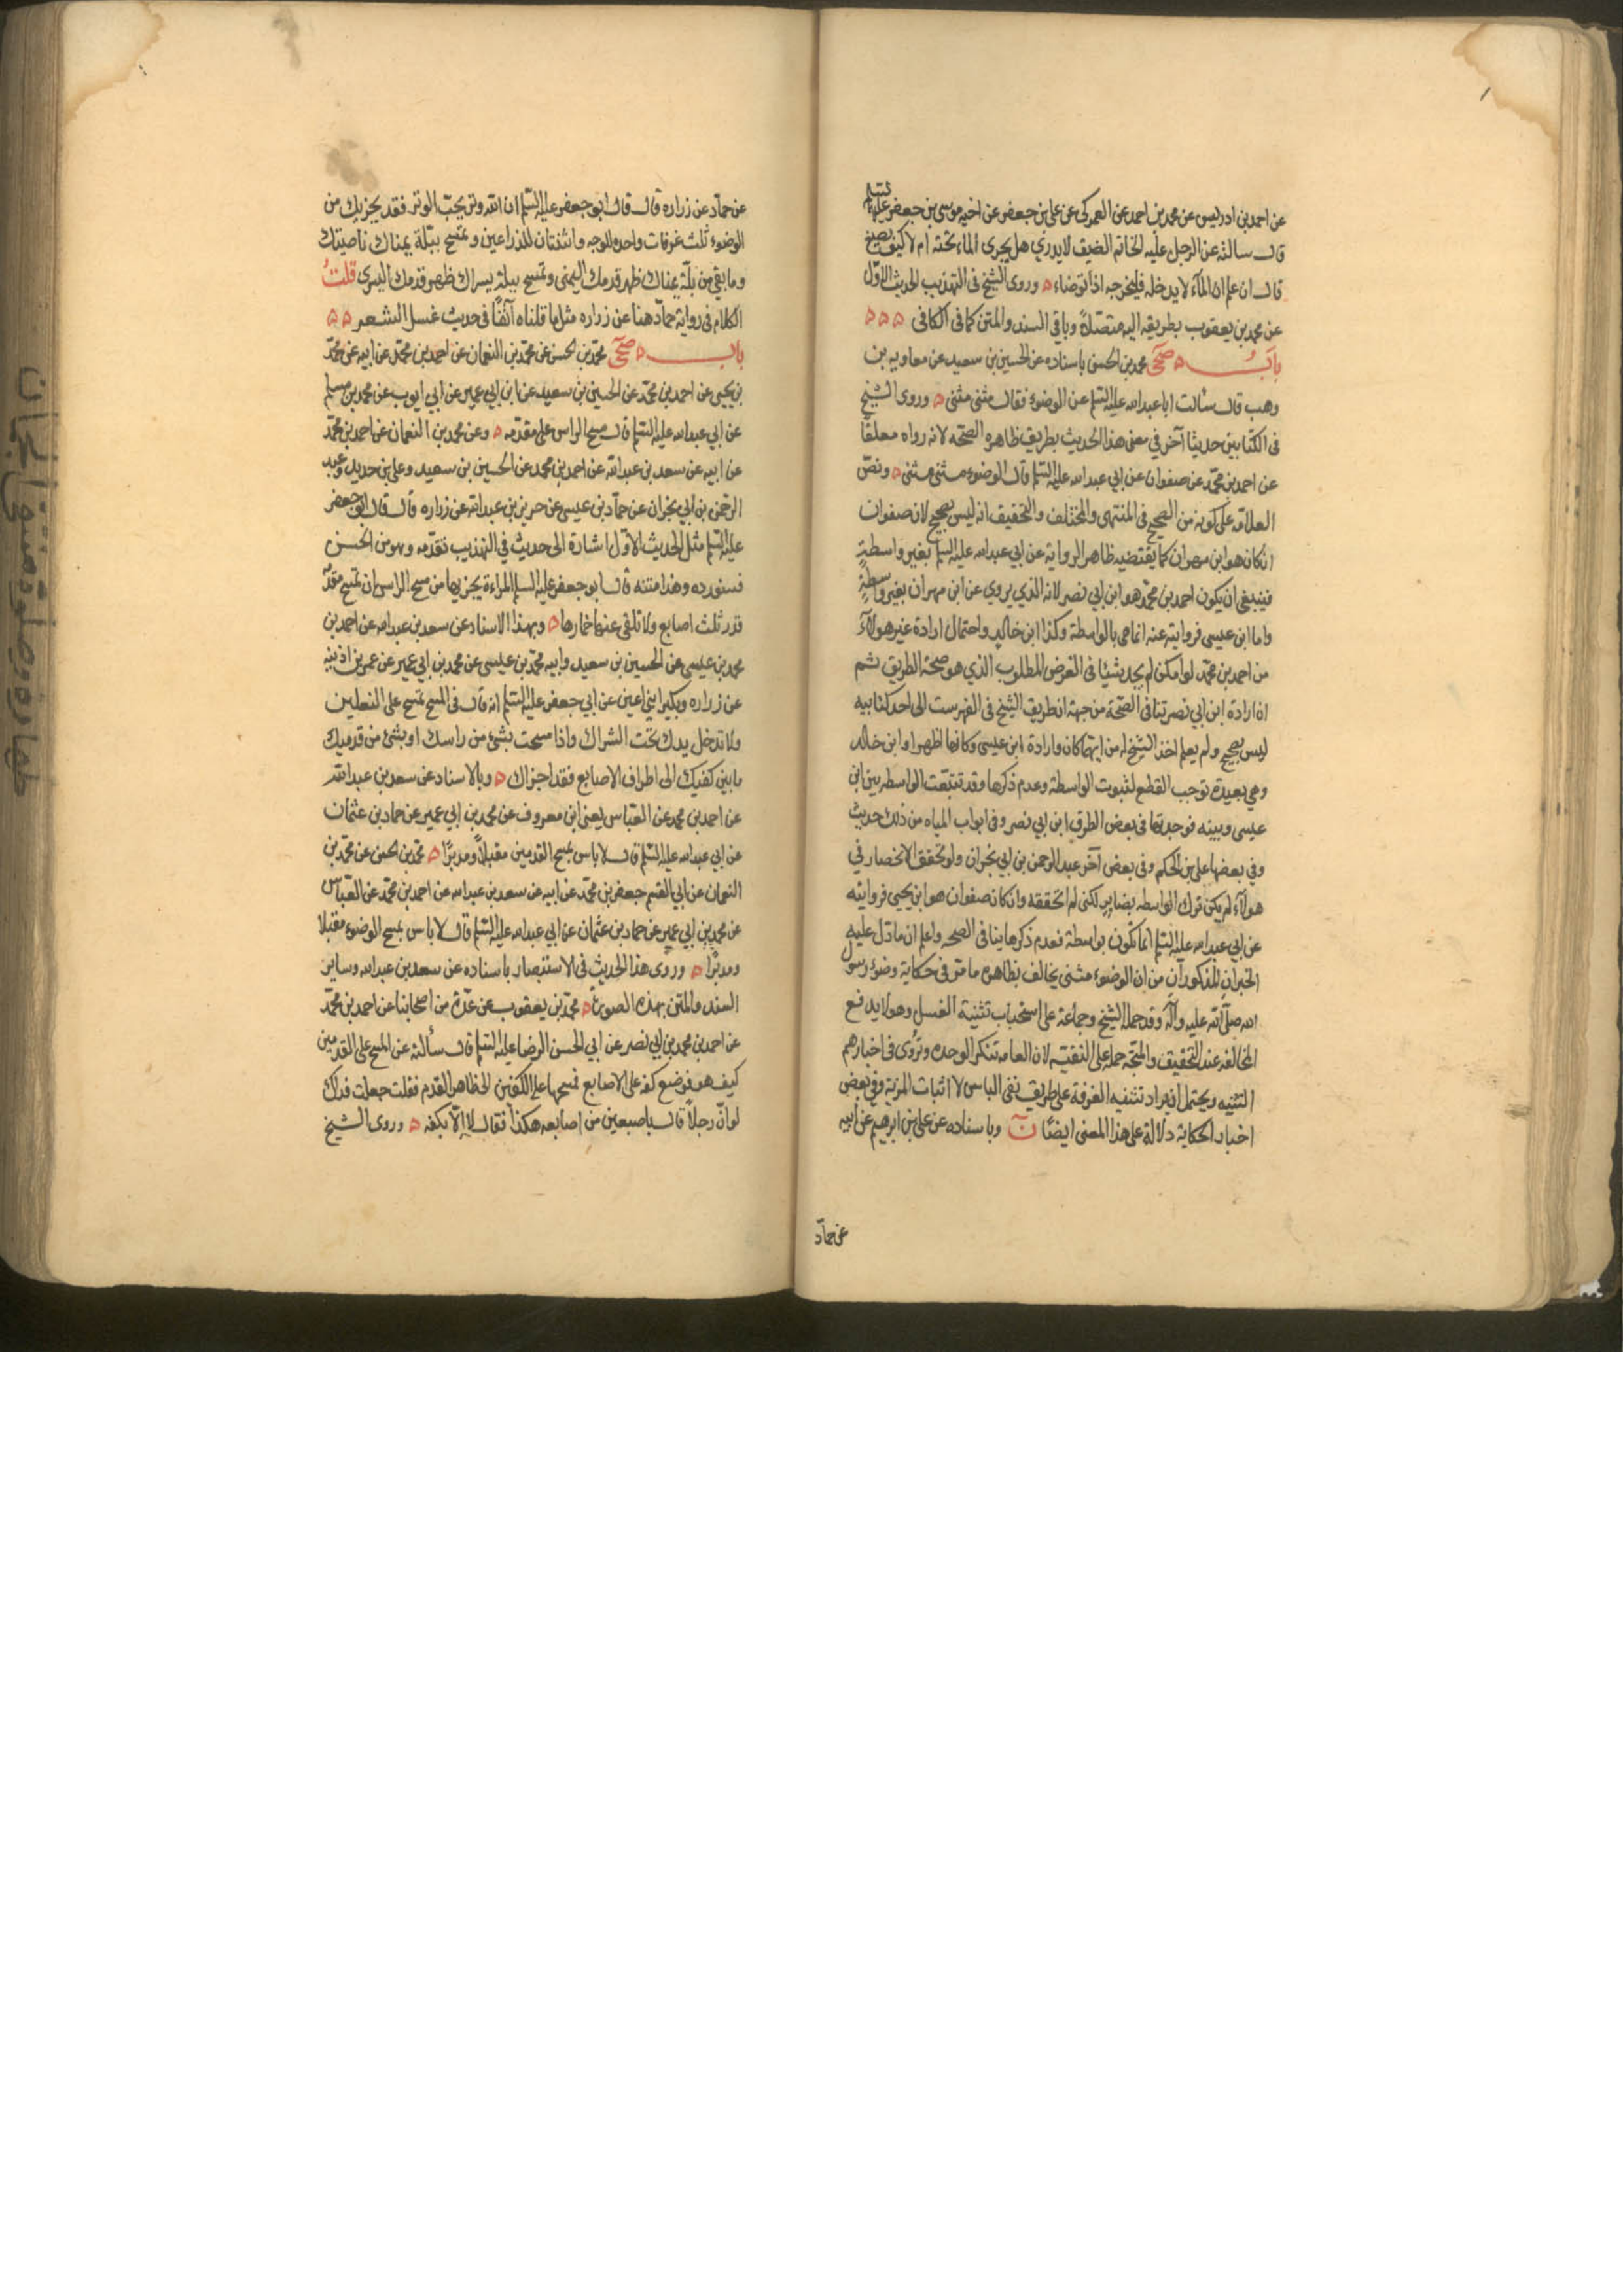 عن احمد بن ادريس عن محمد بن احمد عن العمركى عن على بن جعفر عن اخيه موسى بن جعفر عليهما السلم
قال سالته عن الرجل عليه الخاتم الضيق لا يدرى هل يجرى الماء تحته ام لا كيف يصنع
قال ان علم ان المآء لا يدخله فليخرجه اذا توضاء ه وروى الشيخ فى التهذيب الحديث الاوّل
عن محمد بن يعقوب بطريقه اليه متصلاً وباقى السند والمتن كما فى الكافى ه ه ه
بابٌ ه صحى محمد بن الحسن باسناده عن الحسين بن سعيد عن معاويه بن
وهب قال سألت ابا عبد الله عليه السلم عن الوضوء فقال مثنى مثنى ه وروى الشيخ
فى الكتابين حديثا آخر في معنى هذا الحديث بطريق ظاهره الصحّه لانه رواه معلقًا
عن احمد بن محمّد عن صفوان عن ابي عبد الله عليه السلم قال الوضوء مثنى مثنى ه ونصّ
العلامّه على كونه من الصحيح فى المنتهى والمختلف والتحقيق انه ليس بصحيح لان صفوان
ان كان هو ابن مهران كما يقتضيه ظاهر الرواية عن ابي عبد الله عليه السلم بغير واسطةٍ
فينبغى ان يكون احمد بن محمّد هو ابن ابي نصر لانه الذي يروي عن ابن مهران بغير واسطةٍ
واما ابن عيسى فروايته عنه انما هى بالواسطة وكذا ابن خالد واحتمال ارادة غير هولآء
من احمد بن محمّد لو امكن لم يجد شيئا فى الغرض المطلوب الذي هو صحة الطريق ثم
ان ارادة ابن ابي نصر تنافى الصّحة من جهة ان طريق الشيخ فى الفهرست الى احد كتابيه
ليس بصحيح ولم يعلم اخذ الشيخ له من ايهما كان وارادة ابن عيسى وكانها اظهر او ابن خالد
وهي بعيدة توجب القطع لثبوت الواسطة وعدم ذكرها وقد تتبّعت الواسطه بين ابن
عيسى وبينه فوجدتها فى بعض الطرق ابن ابي نصر وفى ابواب المياه من ذلك حديث
وفي بعضها على بن الحكم وفى بعض آخر عبد الرحمن بن ابي نجران ولو تحقق الانحصار في
هولآء لم يكن ترك الواسطه بضاير لكنى لم اتحققه وان كان صفوان هو ابن يحيى فروايته
عن ابي عبد الله عليه السلم انما تكون بواسطة فعدم ذكرها ينافى الصحه واعلم ان ما دلّ عليه
الخبران المذكوران من ان الوضوء مثنى يخالف بظاهره ما مرّ فى حكاية وضوء رسول
الله صلّى الله عليه وآله وقد حمله الشيخ وجماعة على استحباب تثنية الغسل وهو لا يدفع
المخالفه عند التحقيق والمتّجه حمله على التقيّه لان العامه تنكر الوحده وتروى فى اخبارهم
التثنيه ويحتمل ان يراد تثنيه الغرفة على طريق نفى الباس لا اثبات المزيّة وفي بعض
اخبار الحكاية دلالة على هذا المعنى ايضًا ن وباسناده عن على بن ابرهيم عن ابيه
عن حمآد
عن حمآد عن زراره قال قال ابو جعفر عليه السّلم ان الله وتر يحبّ الوتر فقد يجزيك من
الوضوء ثلث غرفات واحده للوجه واثنتان للذراعين وتمسح ببلّة يمناك ناصيتك
وما بقي من بلّة يمناك ظهر قدمك اليمنى وتمسح ببلة يسراك ظهر قدمك اليسرى قلتُ
الكلام فى رواية حمآد هنا عن زراره مثل ما قلناه آنفًا فى حديث غسل الشعر ه ه
باب ه صحى محمّد بن الحسن عن محمّد بن النعمان عن احمد بن محمّد عن ابيه عن محمّد
بن يحيى عن احمد بن محمّد عن الحسين بن سعيد عن ابن ابي عمير عن ابي ايوب عن محمد بن مسلم
عن ابي عبد الله عليه السلم قال مسح الراس على مقدّمه ه وعن محمد بن النعمان عن احمد بن محمّد
عن ابيه عن سعد بن عبد الله عن احمد بن محمد عن الحسين بن سعيد وعلى بن حديد وعبد
الرحمن بن ابي نجران عن حمآد بن عيسى عن حريز بن عبد الله عن زراره قال قال ابو جعفر
عليه السلم مثل الحديث الاوّل اشارة الى حديث في التهذيب تقدّمه وهو من الحسن
فسنورده وهذا متنه قال ابو جعفر عليه السلم المراءة يجزيها من مسح الراس ان تمسح مقدّمه
قدر ثلث اصابع ولا تلقى عنها خمارها ه وبهذا الاسناد عن سعد بن عبد الله عن احمد بن
محمد بن عيسى عن الحسين بن سعيد وابيه محمّد بن عيسى عن محمد بن ابي عمير عن عمر بن اذينه
عن زراره وبكير ابني اعين عن ابي جعفر عليه السلم انه قال فى المسح تمسح على النعلين
ولا تدخل يدك تحت الشراك واذا مسحت بشئ من راسك او بشئ من قدميك
ما بين كفيك الى اطراف الاصابع فقد اجزاك ه وبالاسناد عن سعد بن عبد الله
عن احمد بن محمد عن العبّاس يعنى ابن معروف عن محمد بن ابي عمير عن حماد بن عثمان
عن ابي عبد الله عليه السّلم قال لا باس بمسح القدمين مقبلاً ومدبرًا ه محمّد بن الحسن عن محمّد بن
النعمان عن ابي القسم جعفر بن محمّد عن ابيه عن سعد بن عبد الله عن احمد بن محمّد عن العبّاس
عن محمد بن ابي عمير عن حماد بن عثمان عن ابي عبد الله عليه السّلم قال لا باس بمسح الوضوء مقبلا
ومدبرًا ه وروى هذا الحديث فى الاستبصار باسناده عن سعد بن عبد الله وساير
السند والمتن بهذه الصورة ه محمّد بن يعقوب عن عدّة من اصحابنا عن احمد بن محمّد
عن احمد بن محمد بن ابي نصر عن ابي الحسن الرضا عليه السّلم قال سألته عن المسح على القدمين
كيف هو فوضع كفه على الاصابع فمسحها على الكعبين الى ظاهر القدم فقلت جعلت فداك
لو انّ رجلاً قال باصبعين من اصابعه هكذا فقال لا الّا بكفه ه وروى الشيخ